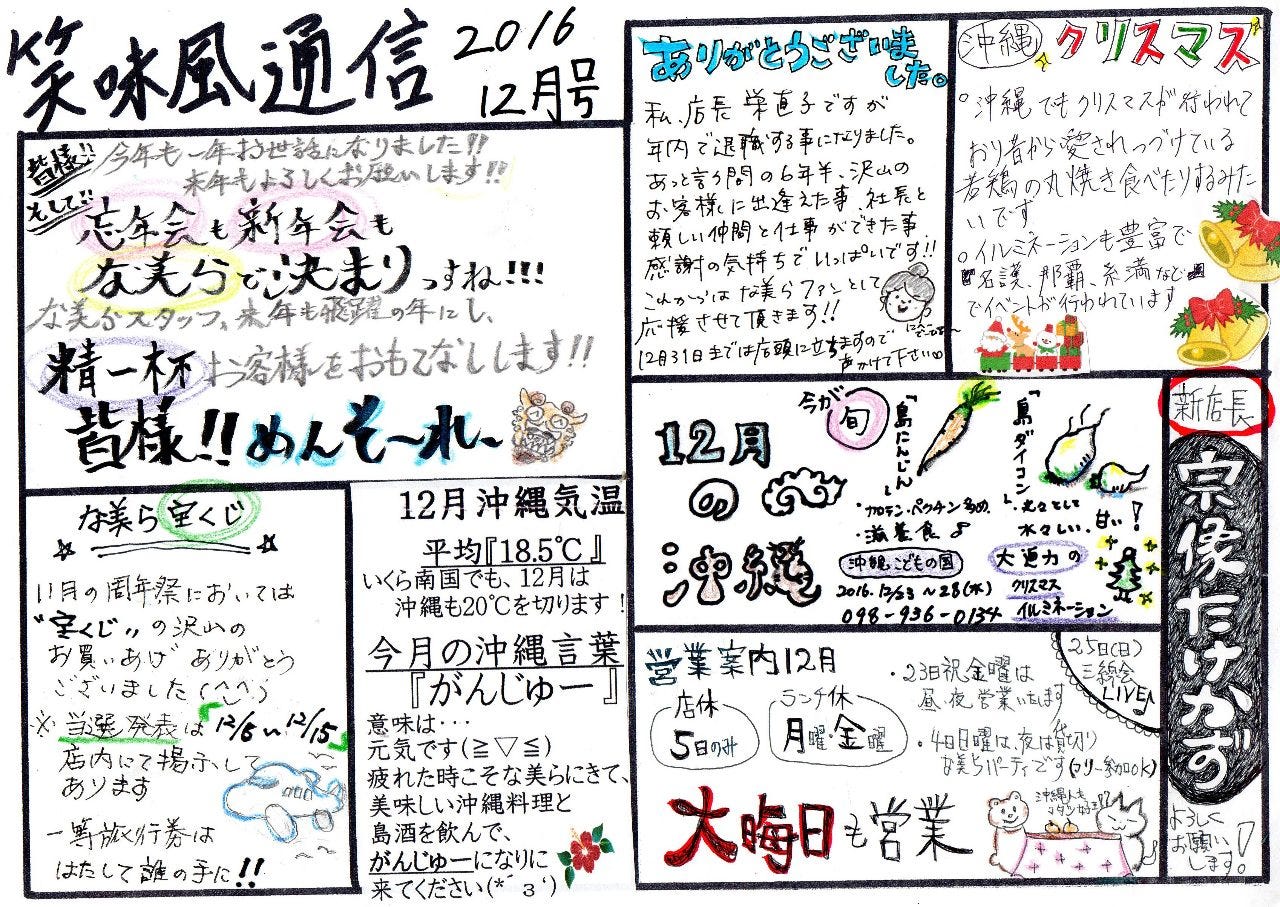 笑味風通信
2016
12月号
皆様!!
今年も一年お世話になりました!!
来年もよろしくお願いします!!
そして!!
忘年会も新年会も
な美らで決まりっすね!!!
な美らスタッフ、来年も飛躍の年にし、
精一杯お客様をおもてなしします!!
皆様!!めんそ〜れ〜
な美ら宝くじ
11月の周年祭においては
"宝くじ"の沢山の
お買いあげありがとう
ございました(^^)
※当選発表は12/5〜12/15
店内にて掲示して
あります
一等旅行券は
はたして誰の手に!!
12月沖縄気温
平均『18.5℃』
いくら南国でも、12月は
沖縄も20℃を切ります!
今月の沖縄言葉
『がんじゅー』
意味は・・・
元気です(≧▽≦)
疲れた時こそな美らにきて、
美味しい沖縄料理と
島酒を飲んで、
がんじゅーになりに
来てください(*´з`)
ありがとうございま
した。
私、店長 栄直子ですが
年内で退職する事になりました。
あっと言う間の6年半、沢山の
お客様に出逢えた事、社長と
頼しい仲間と仕事ができた事、
感謝の気持ちでいっぱいです!!
これからはな美らファンとして
応援させて頂きます!!
12月31日までは店頭に立ちますので
声かけて下さい。
沖縄クリスマス
○沖縄でもクリスマスが行われて
おり昔から愛されつづけている
若鶏の丸焼き食べたりするみた
いです
○イルミネーションも豊富で
名護、那覇、糸満など
でイベントが行われています
12月
の
沖縄
今が旬
「島にんじん」
・カロテン・ペクチン多め
・滋養食♪
「島ダイコン」
・丸々として
水々しい、甘い!
沖縄こどもの国
2016.12/23〜28(水)
098-936-0134
大迫力の
クリスマス
イルミネーション
営業案内12月
店休
5日のみ
ランチ休
月曜・金曜
・23日祝金曜は
昼、夜営業いたします
・4日日曜は、夜は貸切り
な美らパーティです(フリー参加OK)
25日(日)
三線会
LIVE♪
大晦日も営業
沖縄人も
コタツ好き!!
新店長
宗像たけかず
よろしく
お願い
します!